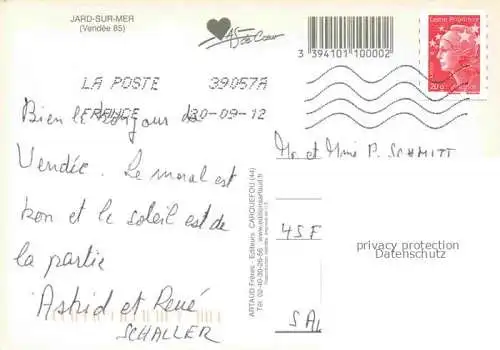 JARD-SUR-MER
(Vendée 85)
As de Cœur
3394101100002
Lettre Prioritaire
20g
LA POSTE 39057A
FRANCE 30-09-12
Bien le bonjour de
Vendée. Le moral est
bon et le soleil est de
la partie
Astrid et René
SCHALLER
ARTAUD Frères - Editeurs CARQUEFOU (44)
Tél. 02-40-30-26-56 www.editionsartaud.fr
Mr et Mme P. SCHMITT
45 F
privacy protection
Datenschutz
SAL